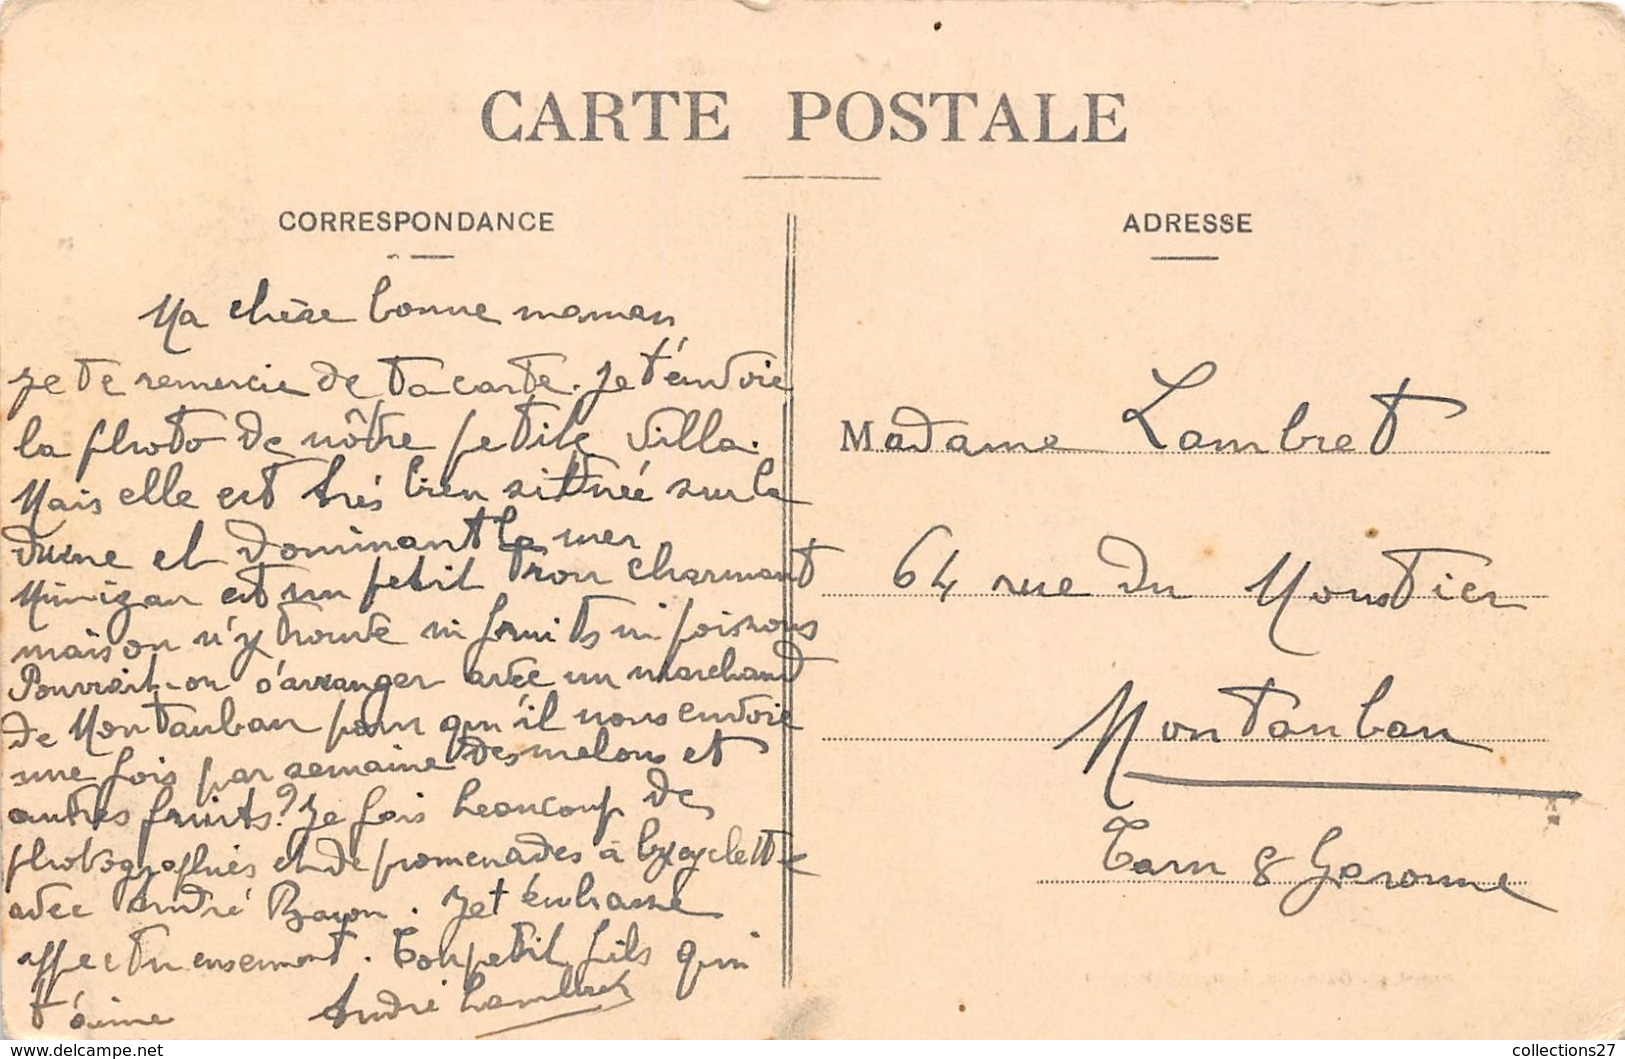 CARTE POSTALE
CORRESPONDANCE
Ma chère bonne maman
je te remercie de ta carte. Je t'envoie
la photo de nôtre petite villa.
Mais elle est très bien située sur la
dune et dominant la mer
Mimizan est un petit trou charmant
mais on n'y trouve ni fruits ni poissons
Pourrait-on s'arranger avec un marchand
de Montauban pour qu'il nous envoie
une fois par semaine des melons et
autres fruits? Je fais beaucoup de
photographies et de promenades à bycyclette
avec André Bayon. Je t'embrasse
affectueusement. Ton petit fils qui
t'aime André Lambret
ADRESSE
Madame Lambret
64 rue du Moustier
Montauban
Tarn & Garonne
collections27